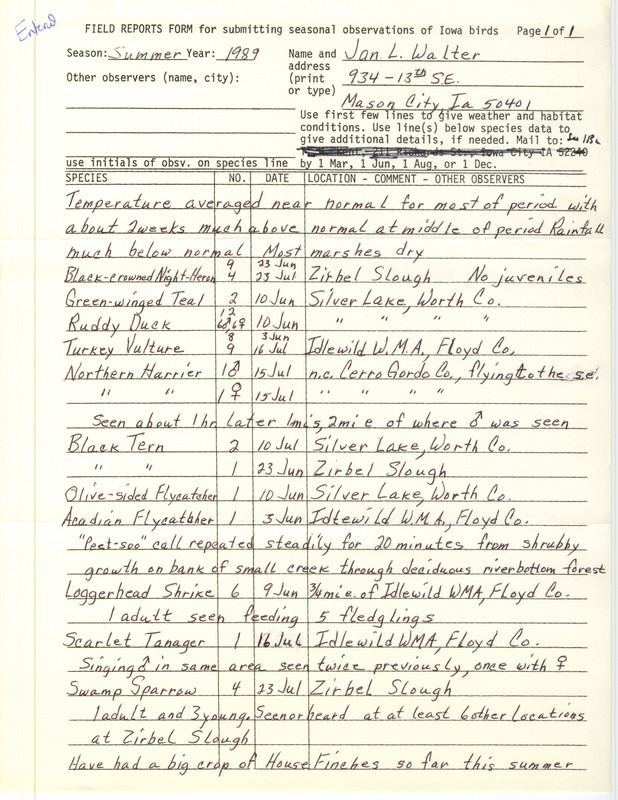 Entered
FIELD REPORTS FORM for submitting seasonal observations of Iowa birds Page 1 of 1
Season: Summer Year: 1989
Name and address (print or type) Jan L. Walter
934-13th S.E.
Mason City, Ia 50401
Other observers (name, city):
Use first few lines to give weather and habitat
conditions. Use line(s) below species data to
give additional details, if needed. Mail to:
Kent, 211 Richards St., Iowa City IA 52240
use initials of obsv. on species line by 1 Mar, 1 Jun, 1 Aug, or 1 Dec.
SPECIES NO. DATE LOCATION - COMMENT - OTHER OBSERVERS
Temperature averaged near normal for most of period with
about 2weeks much above normal at middle of period Rainfall
much below normal Most marshes dry
9 23 Jun
Black-crowned Night-Heron 4 23 Jul Zirbel Slough No juveniles
Green-winged Teal 2 10 Jun Silver Lake, Worth Co.
12
Ruddy Duck 6♂,6♀ 10 Jun " " " "
8 3 Jun
Turkey Vulture 9 16 Jul Idlewild W.M.A., Floyd Co.
Northern Harrier 1♂ 15 Jul n.c. Cerro Gordo Co., flying to the s.e.
" " 1♀ 15 Jul " " " "
Seen about 1hr later 1mi s, 2mi e of where ♂ was seen
Black Tern 2 10 Jul Silver Lake, Worth Co.
" " 1 23 Jun Zirbel Slough
Olive-sided Flycatcher 1 10 Jun Silver Lake, Worth Co.
Acadian Flycatcher 1 3 Jun Idlewild WMA, Floyd Co.
"Peet-soo" call repeated steadily for 20 minutes from shrubby
growth on bank of small creek through deciduous riverbottom forest
Loggerhead Shrike 6 9 Jun ¾mi e. of Idlewild WMA, Floyd Co.
1 adult seen feeding 5 fledglings
Scarlet Tanager 1 16 Jul Idlewild WMA, Floyd Co.
Singing ♂ in same area seen twice previously, once with ♀
Swamp Sparrow 4 23 Jul Zirbel Slough
1adult and 3young. Seen or heard at at least 6 other locations
at Zirbel Slough
Have had a big crop of House Finches so far this summer